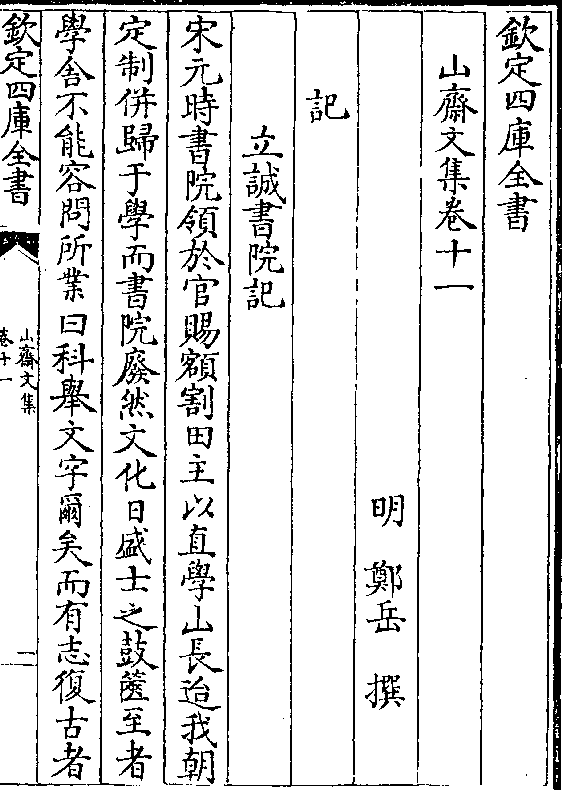 欽定四庫全書
山齋文集卷十一
明 鄭岳 撰
記
立誠書院記
宋元時書院領於官賜額割田主以直學山長迨我朝
定制併歸于學而書院廢然文化日盛士之鼓篋至者
學舎不能容問所業曰科舉文字爾矣而有志復古者
欽定四庫全書
山齋文集
卷十一
一